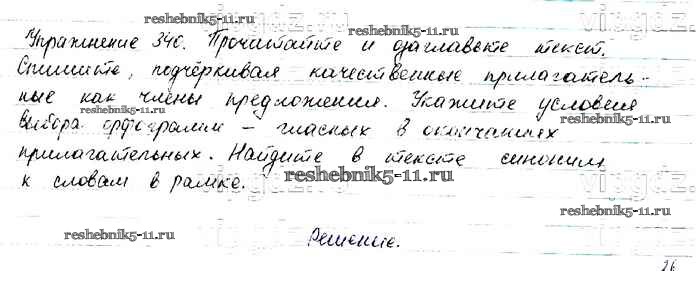 Упражнение 346. Прочитайте и озаглавьте текст.
Спишите, подчёркивая качественные прилагатель-
ные как члены предложения. Укажите условия
выбора орфограмм – гласных в окончаниях
прилагательных. Найдите в тексте синонимы
к словам в рамке.
Решение.
reshebnik5-11.ru
reshebnik5-11.ru
reshebnik5-11.ru
reshebnik5-11.ru
reshebnik5-11.ru
reshebnik5-11.ru